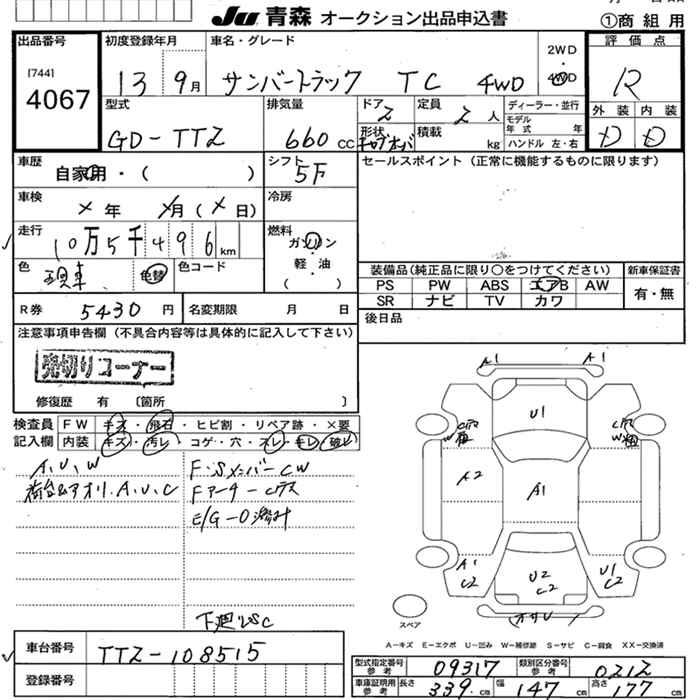 JU 青森 オークション出品申込書
①商組用
出品番号
[744]
4067
初度登録年月
13 9月
車名・グレード
サンバートラック TC 4WD
2WD
4WD
評価点
R
外装 内装
D D
型式
GD-TT2
排気量
660 cc
ドア 2
定員 2 人
形状
積載 kg
ディーラー・並行
モデル年式 年
ハンドル 左・右
車歴
自家用・( )
シフト
5F
セールスポイント(正常に機能するものに限ります)
車検
× 年 × 月 ( × 日)
冷房
走行
10万5千496 km
燃料
ガソリン
軽・油
( )
色
色替
色コード
装備品(純正品に限り○をつけてください)
新車保証書
PS PW ABS エアB AW
SR ナビ TV カワ
有・無
R券 5430 円
名変期限 月 日
後日品
注意事項申告欄(不具合内容等は具体的に記入して下さい)
売切りコーナー
修復歴 有 〔箇所 〕
検査員記入欄
FW キズ・飛石・ヒビ割・リペア跡・×要
内装 キズ・汚レ・コゲ・穴・スレ・キレ・破レ
A.U.W
荷台&アオリ.A.U.C
F・Sメンバー CW
E/G-O滲み
下廻りSC
A1 A1
U1
W W
A2
A1
A1 C2
U2 C2
U1 C2
スペア
A-キズ E-エクボ U-凹み W-補修跡 S-サビ C-腐食 XX-交換済
車台番号
TT2-108515
登録番号
型式指定番号 参考 09317
類別区分番号 参考 0212
車庫証明用 参考 長さ 339 cm 幅 147 cm 高さ 177 cm